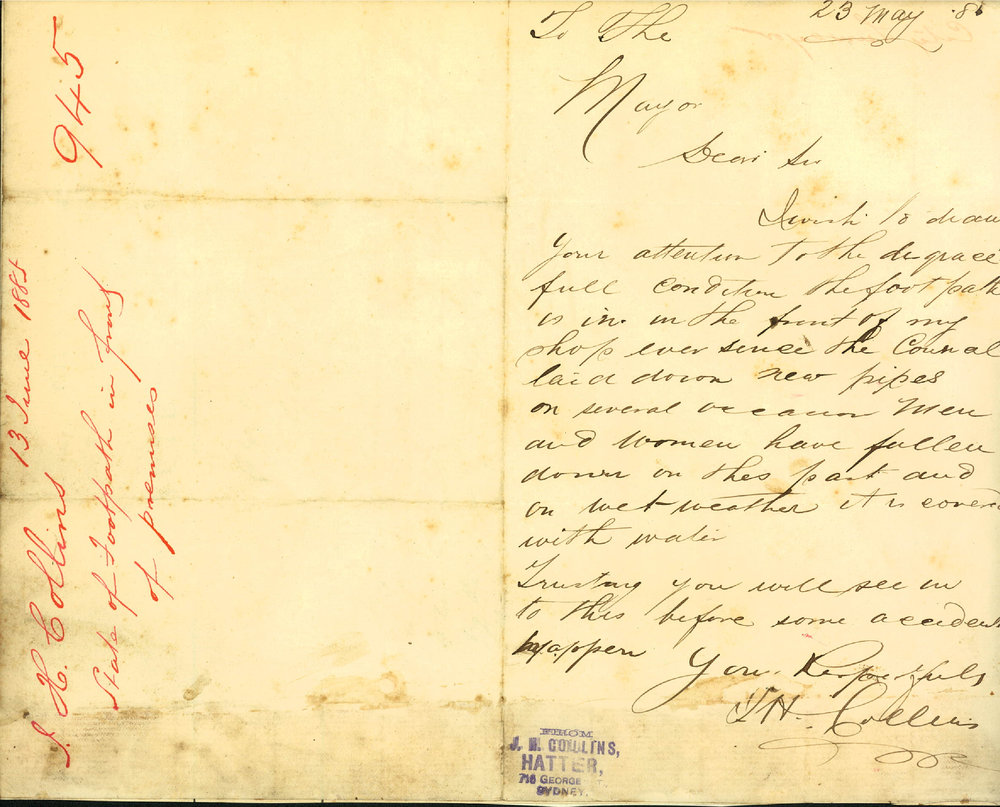 945
J. H. Collins 13 June 1885
State of Footpath in front
of premises
23 May 8
To The
Mayor
Dear Sir
I wish to draw
Your attention to the disgrace
full condition the foot path
is in in the front of my
shop ever since the Council
laid down new pipes
on several occasion Men
and women have fallen
down on this part and
on wet weather it is covered
with water
Trusting you will see in
to this before some accident
happen
Yours Respectfuls
J H. Collins
FROM
J. H. COLLINS,
HATTER,
718 GEORGE ST
SYDNEY.